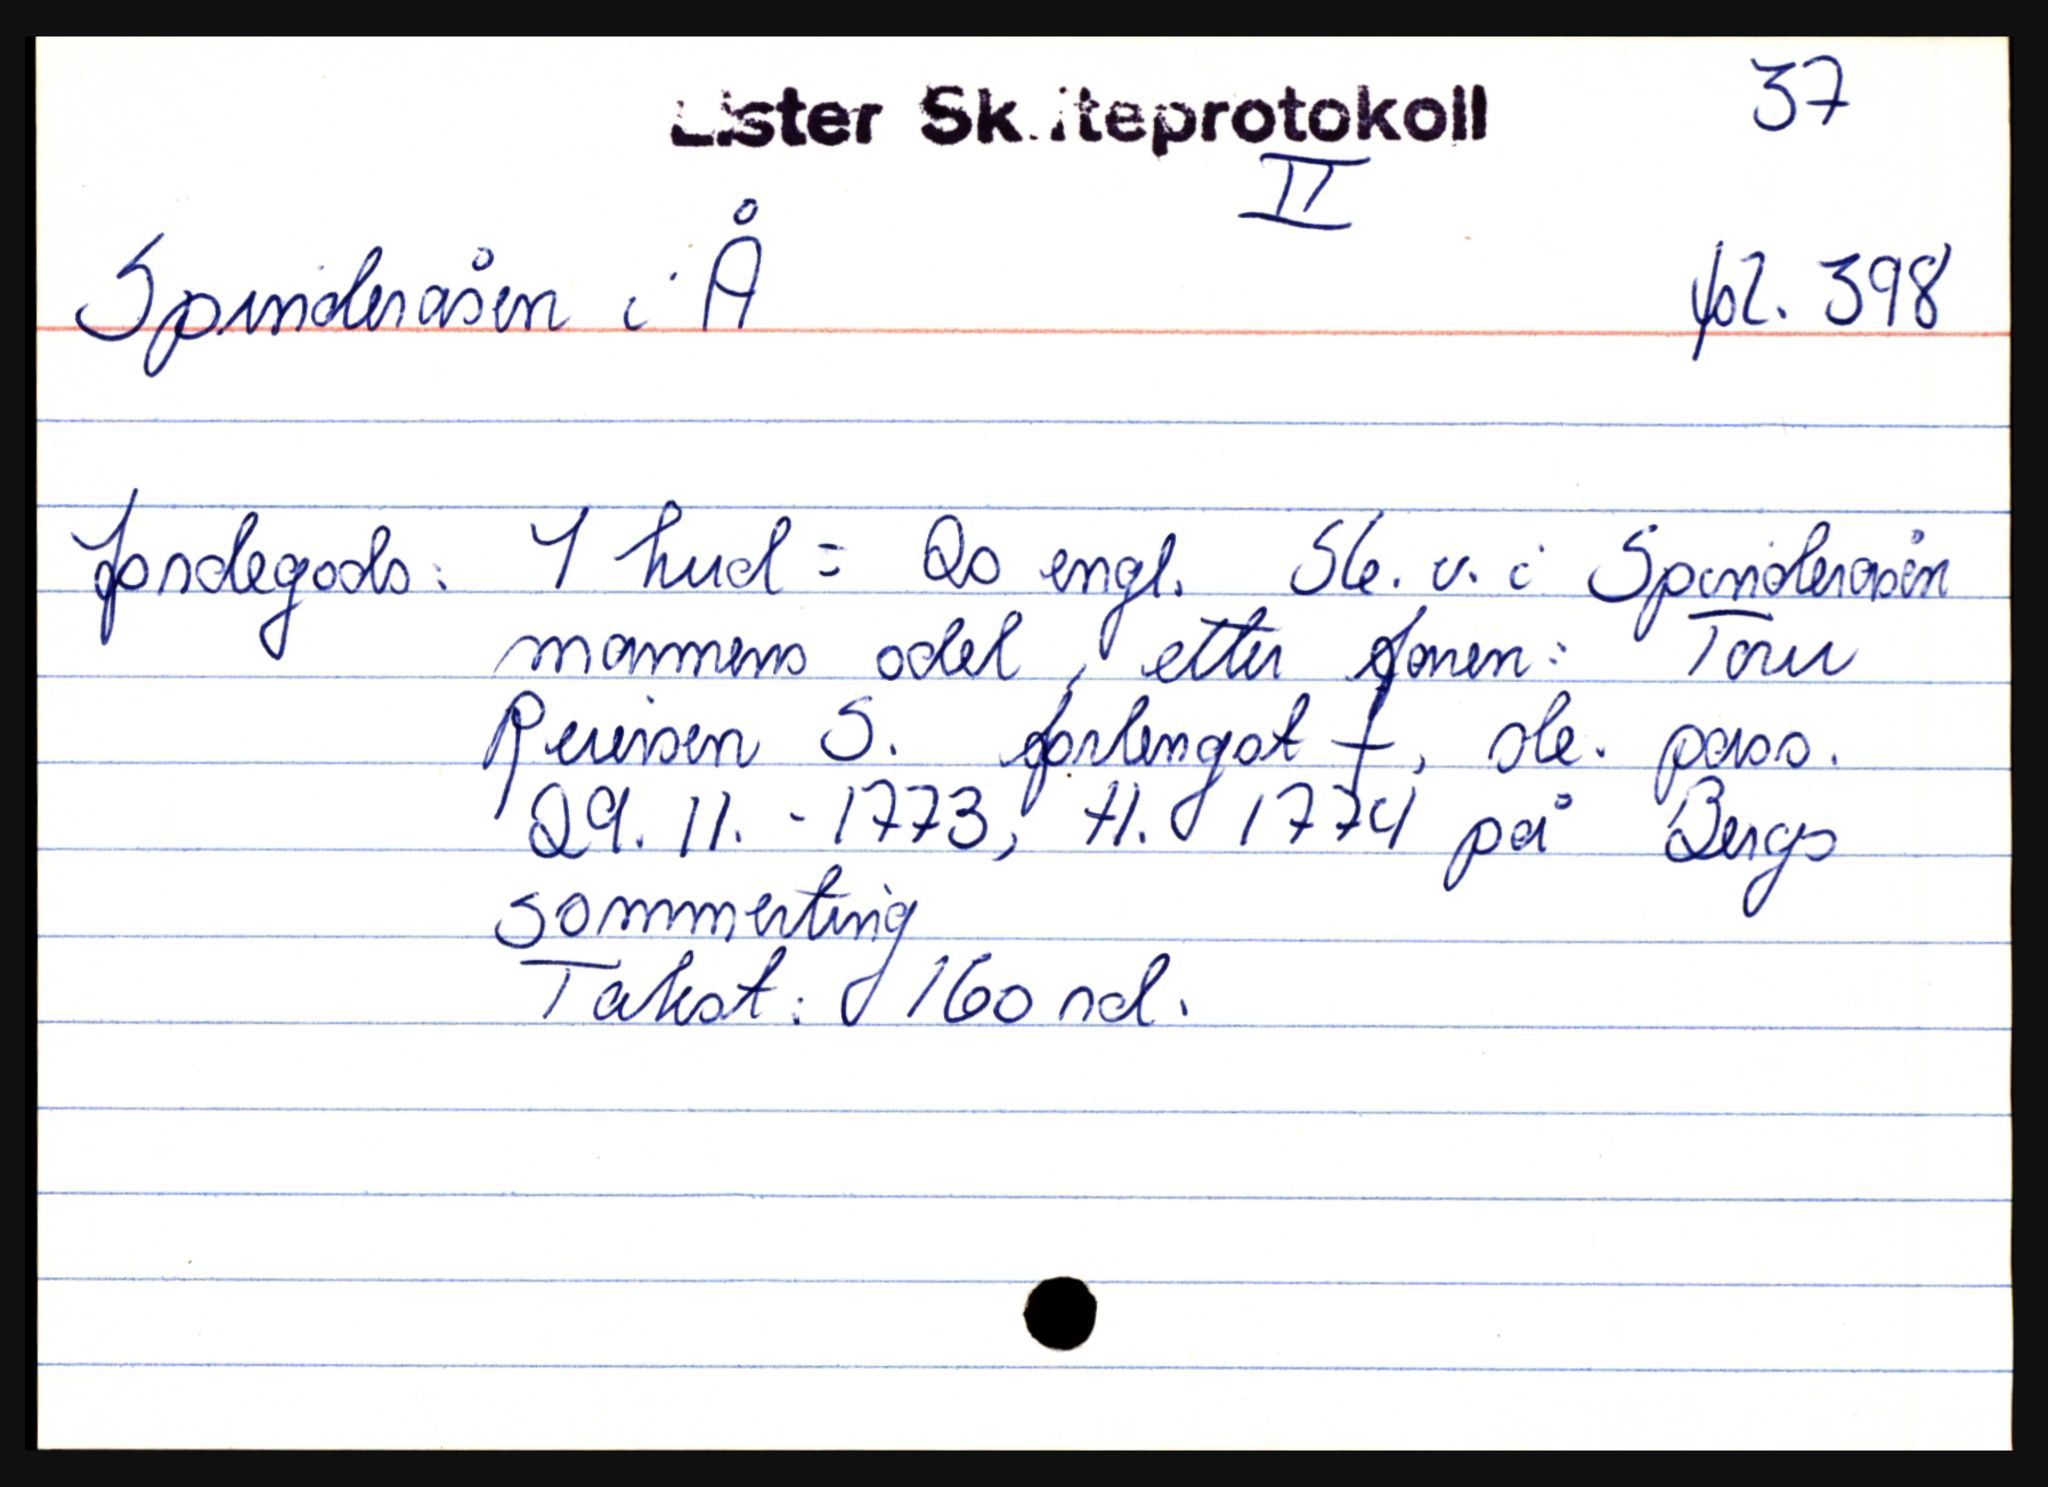 Lister Skifteprotokoll 37
II
Spinderåsen i Å fol. 398
Jordegods: 1 hud = 2s engl. Sk. v. i Spinderåsen
mannens odel, etter faren: Tore
Reiersen S. forlengst †, sk. pass.
29.11.-1773, tl. 1774 på Bergs
sommerting
Takst: 160 rd.